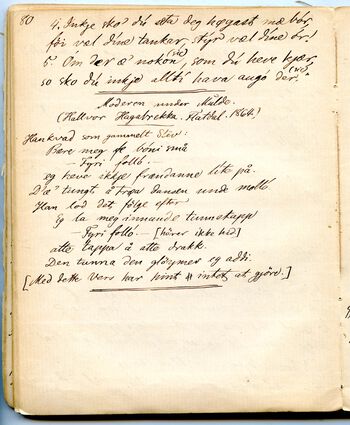 80
4. Inkje sko' du seta deg høgast mæ bór,
føi vel dine tankar, styr vel dine òr!
5. Om der æ nokon, som du heve kjær,
(vie)
so sko du inkje alltí hava augó der."
(vie)
Moderen under Mulde.
(Hallvor Hagebrekka. Flatdal. 1864.)
Han kvad som gammelt Stev:
Bere meg fe bóni små
— Fyri folló —
eg heve ikkje frendanne lite på.
D'æ' tungt å trøa dansen unde molló.
Han lod det følge efter
Eg la meg innunde tunnetapp
— Fyri folló — [hører ikke hid]
atte tappa å atte drakk.
Den tunna den gløymer eg aldri.
[Med dette Vers har hint intet at gjøre.]